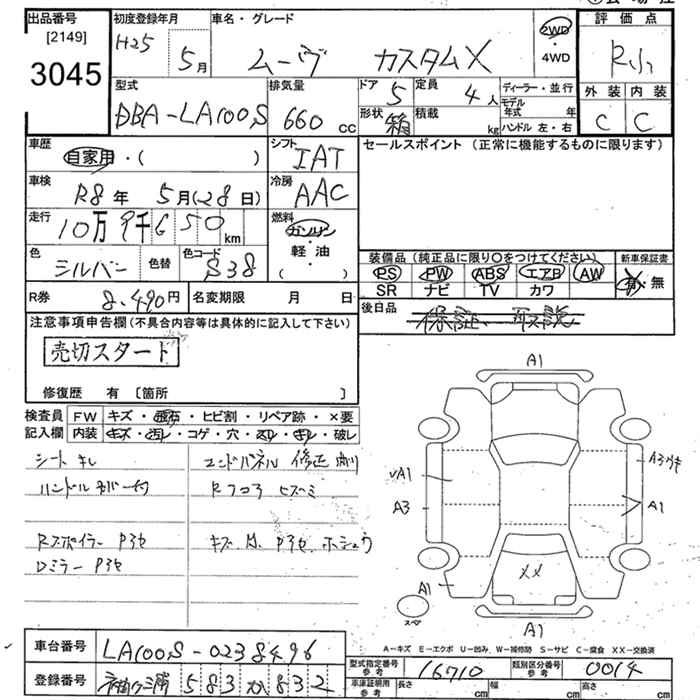 出品番号
[2149]
3045
初度登録年月
H25 5月
車名・グレード
ムーヴ カスタムX
2WD
・
4WD
評価点
R小
外装 内装
C C
型式
DBA-LA100S
排気量
660 cc
ドア 5
定員 4人
形状 箱
積載 kg
ディーラー・並行
モデル年式 年
ハンドル 左・右
車歴
自家用・( )
シフト
IAT
セールスポイント (正常に機能するものに限ります)
車検
R8年 5月(28日)
冷房
AAC
走行
10万9千650km
燃料
ガソリン
・
軽油
・
( )
色
シルバー
色替
色コード
S38
装備品 (純正品に限り○をつけてください)
PS PW ABS エアB AW
SR ナビ TV カワ
新車保証書
有・無
R券 8,490円
名変期限 月 日
後日品
保証、取説
注意事項申告欄(不具合内容等は具体的に記入して下さい)
売切スタート
修復歴 有 〔箇所 〕
検査員 FW キズ・飛石・ヒビ割・リペア跡・×要
記入欄 内装 キズ・汚レ・コゲ・穴・スレ・キレ・破レ
シート キレ
エンドパネル 修正
Rフロア ヒズミ
Rスポイラー Pヨセ
Dミラー Pヨセ
A1
√A1
A3
A1
A1
XX
A1
スペア
A-キズ E-エクボ U-凹み W-補修跡 S-サビ C-腐食 XX-交換済
車台番号 LA100S-0238496
登録番号 583 832
型式指定番号 参考 16710
類別区分番号 参考 0014
車庫証明用 参考 長さ cm 幅 cm 高さ cm